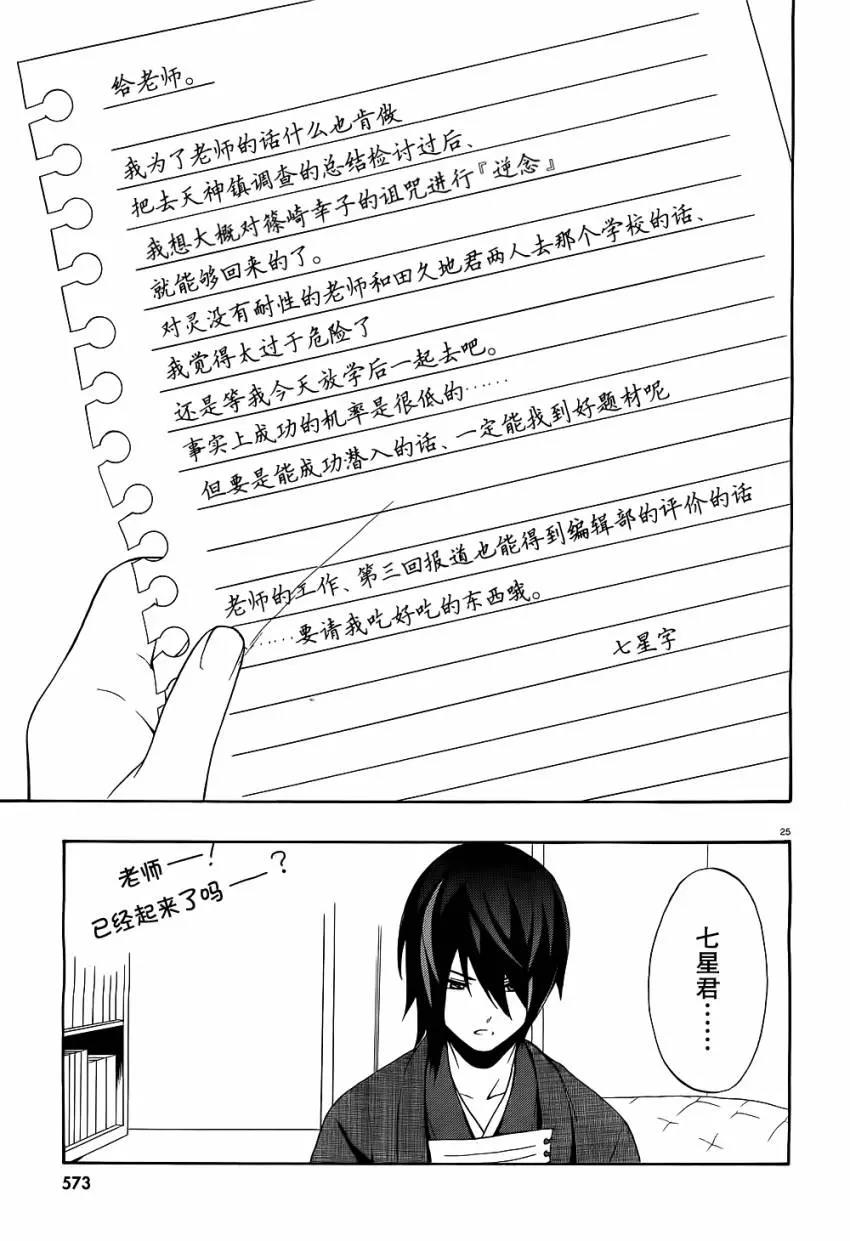 给老师。
我为了老师的话什么也肯做
把去天神镇调查的总结检讨过后、
我想大概对篠崎幸子的诅咒进行『逆念』
就能够回来的了。
对灵没有耐性的老师和田久地君两人去那个学校的话、
我觉得太过于危险了
还是等我今天放学后一起去吧。
事实上成功的机率是很低的……
但要是能成功潜入的话、一定能找到好题材呢
老师的工作、第三回报道也能得到编辑部的评价的话
……要请我吃好吃的东西哦。
七星字
25
老师——！
已经起来了吗——？
七星君……
573